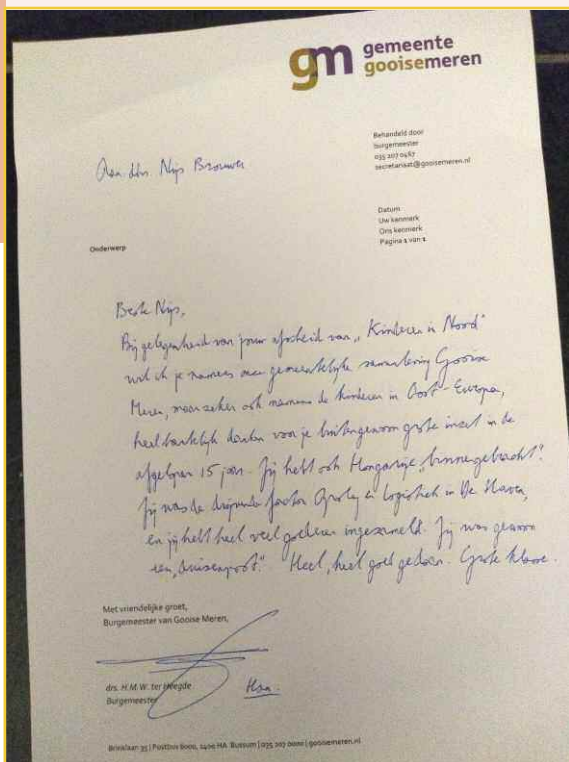 gm gemeente
gooisemeren
Behandeld door
burgemeester
035 207 0467
secretariaat@gooisemeren.nl
Aan drs. Nijs Brouwer
Datum
Uw kenmerk
Ons kenmerk
Pagina 1 van 1
Onderwerp
Beste Nijs,
Bij gelegenheid van jouw afscheid van „Kinderen in Noord"
wil ik je namens onze gemeentelijke samenleving Gooise
Meren, maar zeker ook namens de kinderen in Oost-Europa,
heel hartelijk danken voor je buitengewoon grote inzet in de
afgelopen 15 jaar. Jij hebt ook Hongarije „binnengebracht".
Jij was de drijvende factor opslag en logistiek in De Haven,
en jij hebt heel veel goederen ingezameld. Jij was gewoon
een „duizenpoot." Heel, heel goed gedaan. Grote klasse.
Met vriendelijke groet,
Burgemeester van Gooise Meren,
drs. H.M.W. ter Heegde
Burgemeester
Brinklaan 35 | Postbus 6000, 1400 HA Bussum | 035 207 0000 | gooisemeren.nl